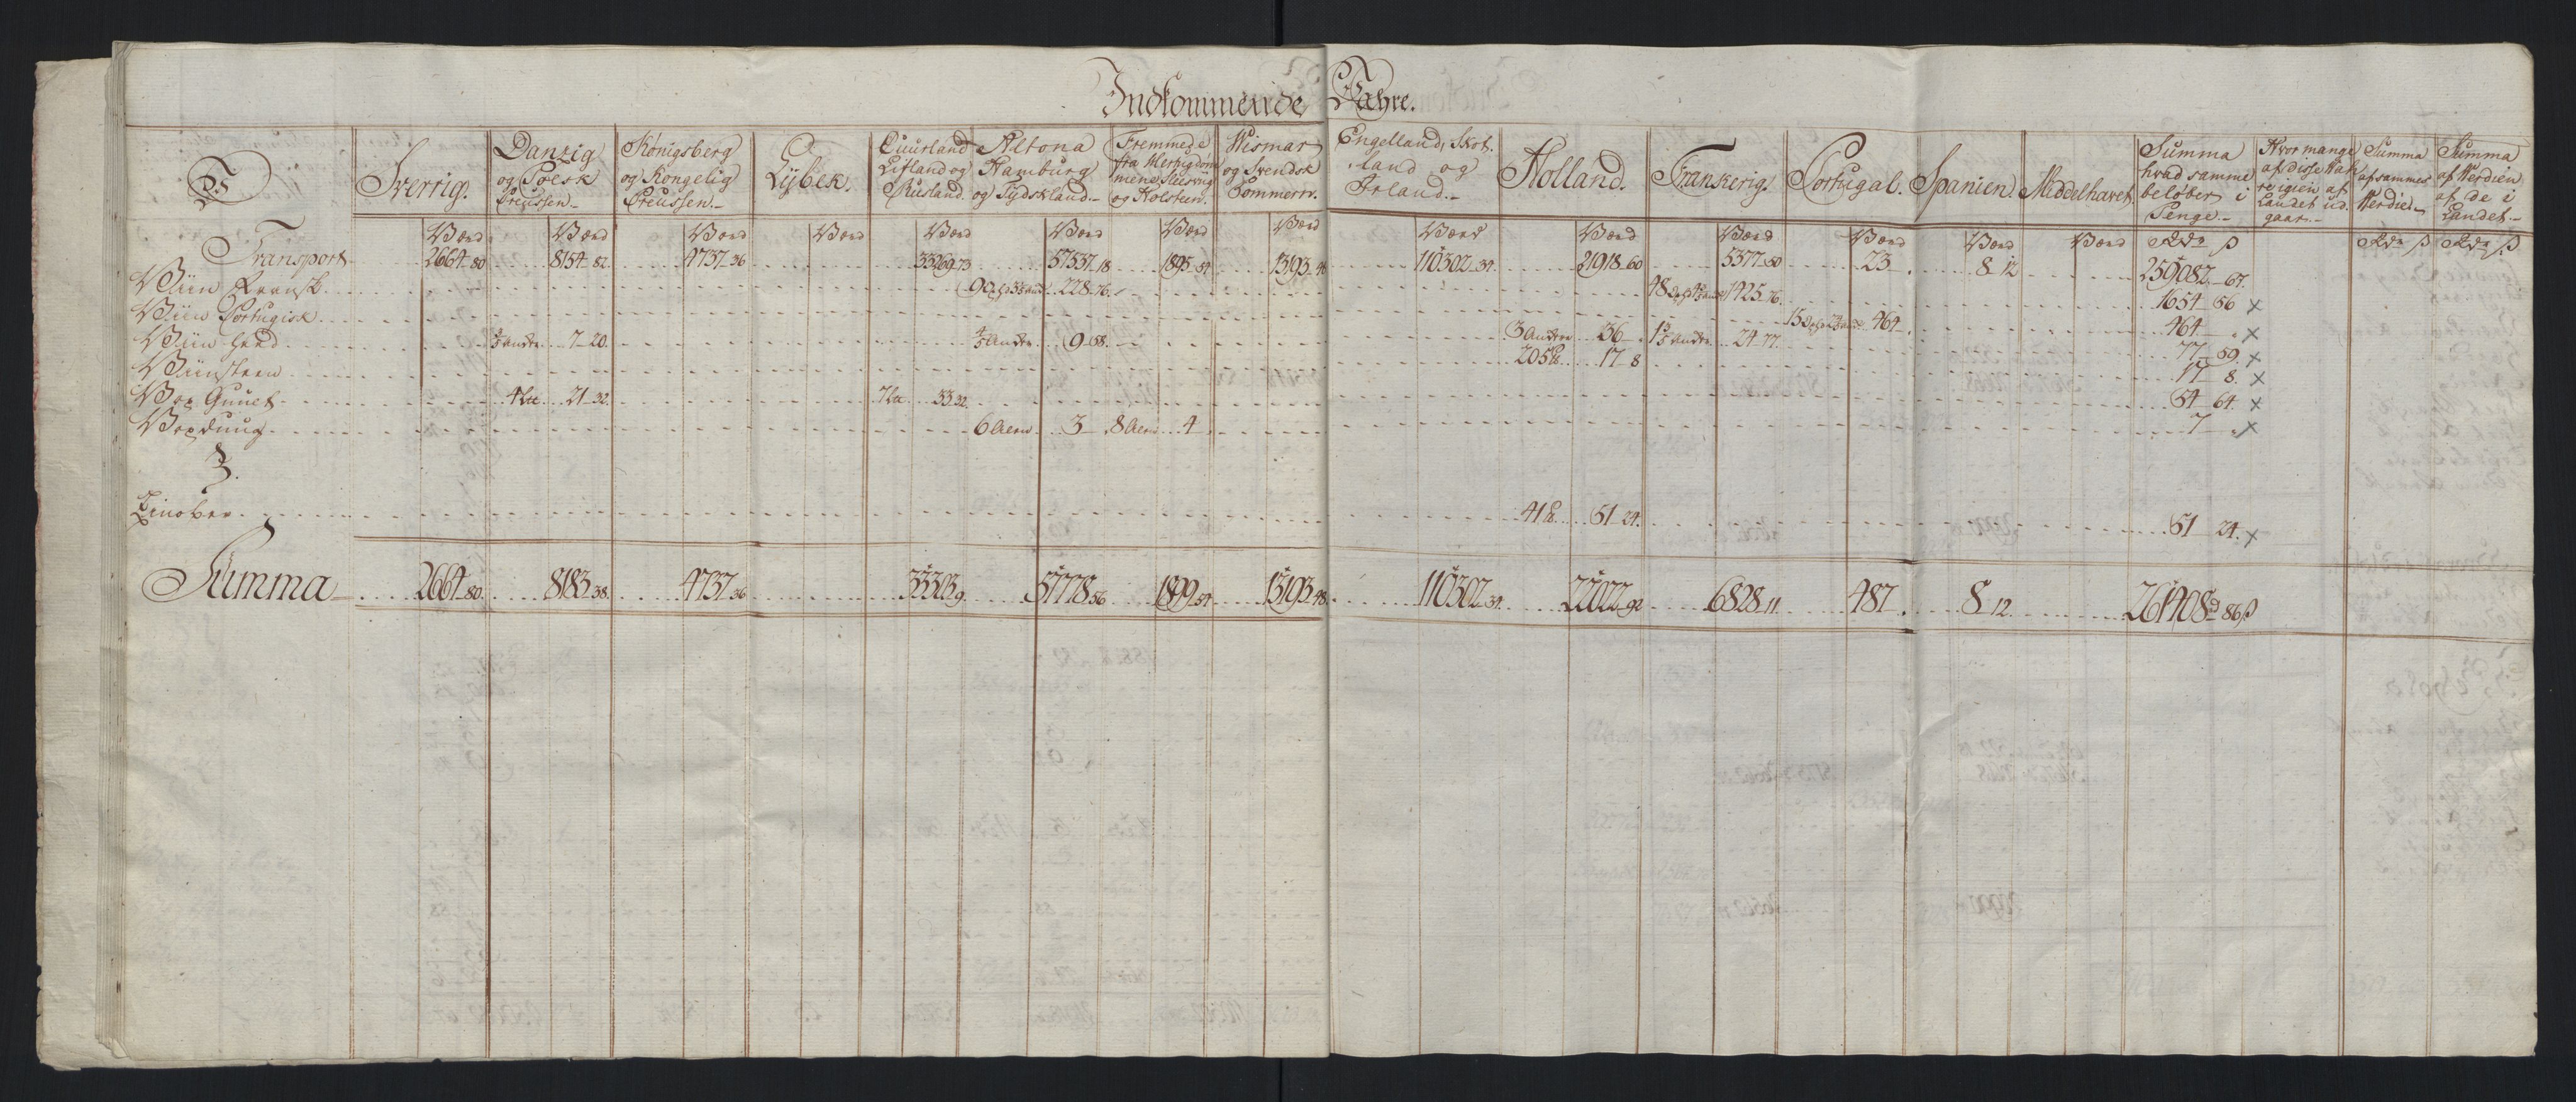 Indkommende Vahre.
V
Sverrig.
Danzig og Polsk Preussen
Königsberg og Kongelig Preussen
Lÿbek.
Cuurland Lifland og Rusland.
Altona Hamburg og Tÿdskland.
Fremmede fra Hertugdommene Slesvig og Holsteen.
Wismar og Svendsk Pommern.
Engelland, Skotland og Irland.
Holland.
Frankerig.
Portugal.
Spanien.
Middelhavet.
Summa hvad samme beløber i Penge
Hvor mange af disse Vahre igien af Landet udgaar
Summa af sammes Verdie
Summa af Verdien af de i Landet
Værd Værd Værd Værd Værd Værd Værd Værd Værd Værd Værd Værd Værd Værd Rdr ß Rdr ß Rdr ß
Transport 2664 80 8154 82 4737 36 33269 73 57537 18 1895 54 13193 48 110302 34 21918 60 5377 50 23 8 12 259082 67
Viin Fransk 228 76 1425 76 1654 56 ×
Viin Portugisk 464 464 ×
Viin 7 20 9 58 3 Anckr 36 24 77 77 59 ×
Viinsteen 205 ℔ 17 8 17 8 ×
Vox 4 21 32 7 33 32 54 64 ×
Voxduug 6 Alen 3 8 Alen 4 7 ×
Z.
Zinober 41 ℔ 51 24 51 24 ×
Summa 2664 80 8183 38 4737 36 33303 9 57778 56 1899 54 13193 48 110302 34 22022 92 6828 11 487 8 12 261408 86 ß